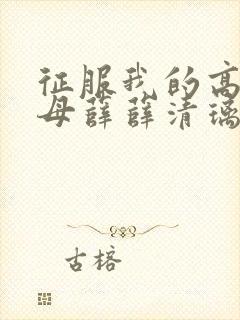 征服我的高
母薛薛清璃
古榕